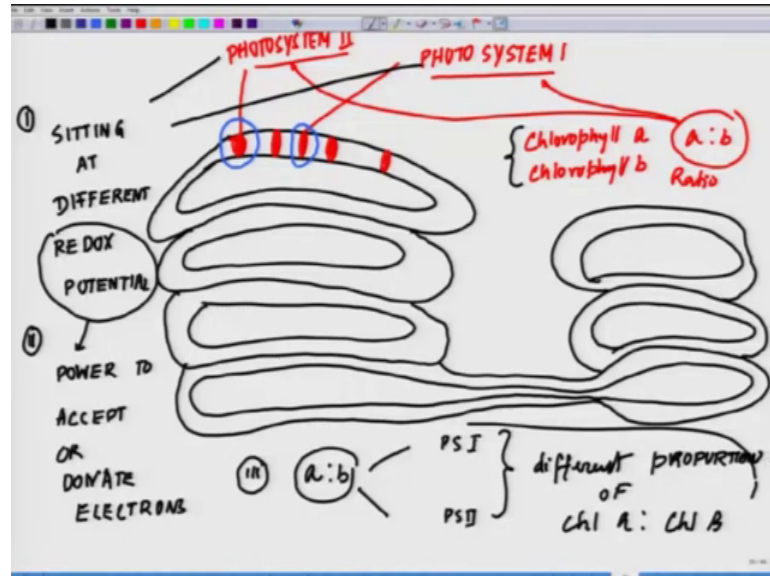 PHOTOSYSTEM II
PHOTO SYSTEM I
I
SITTING
AT
DIFFERENT
REDOX
POTENTIAL
Chlorophyll a
Chlorophyll b
a:b
Ratio
II
POWER TO
ACCEPT
OR
DONATE
ELECTRONS
III
a:b
PS I
PS II
different PROPORTION
OF
Chl a: Chl B